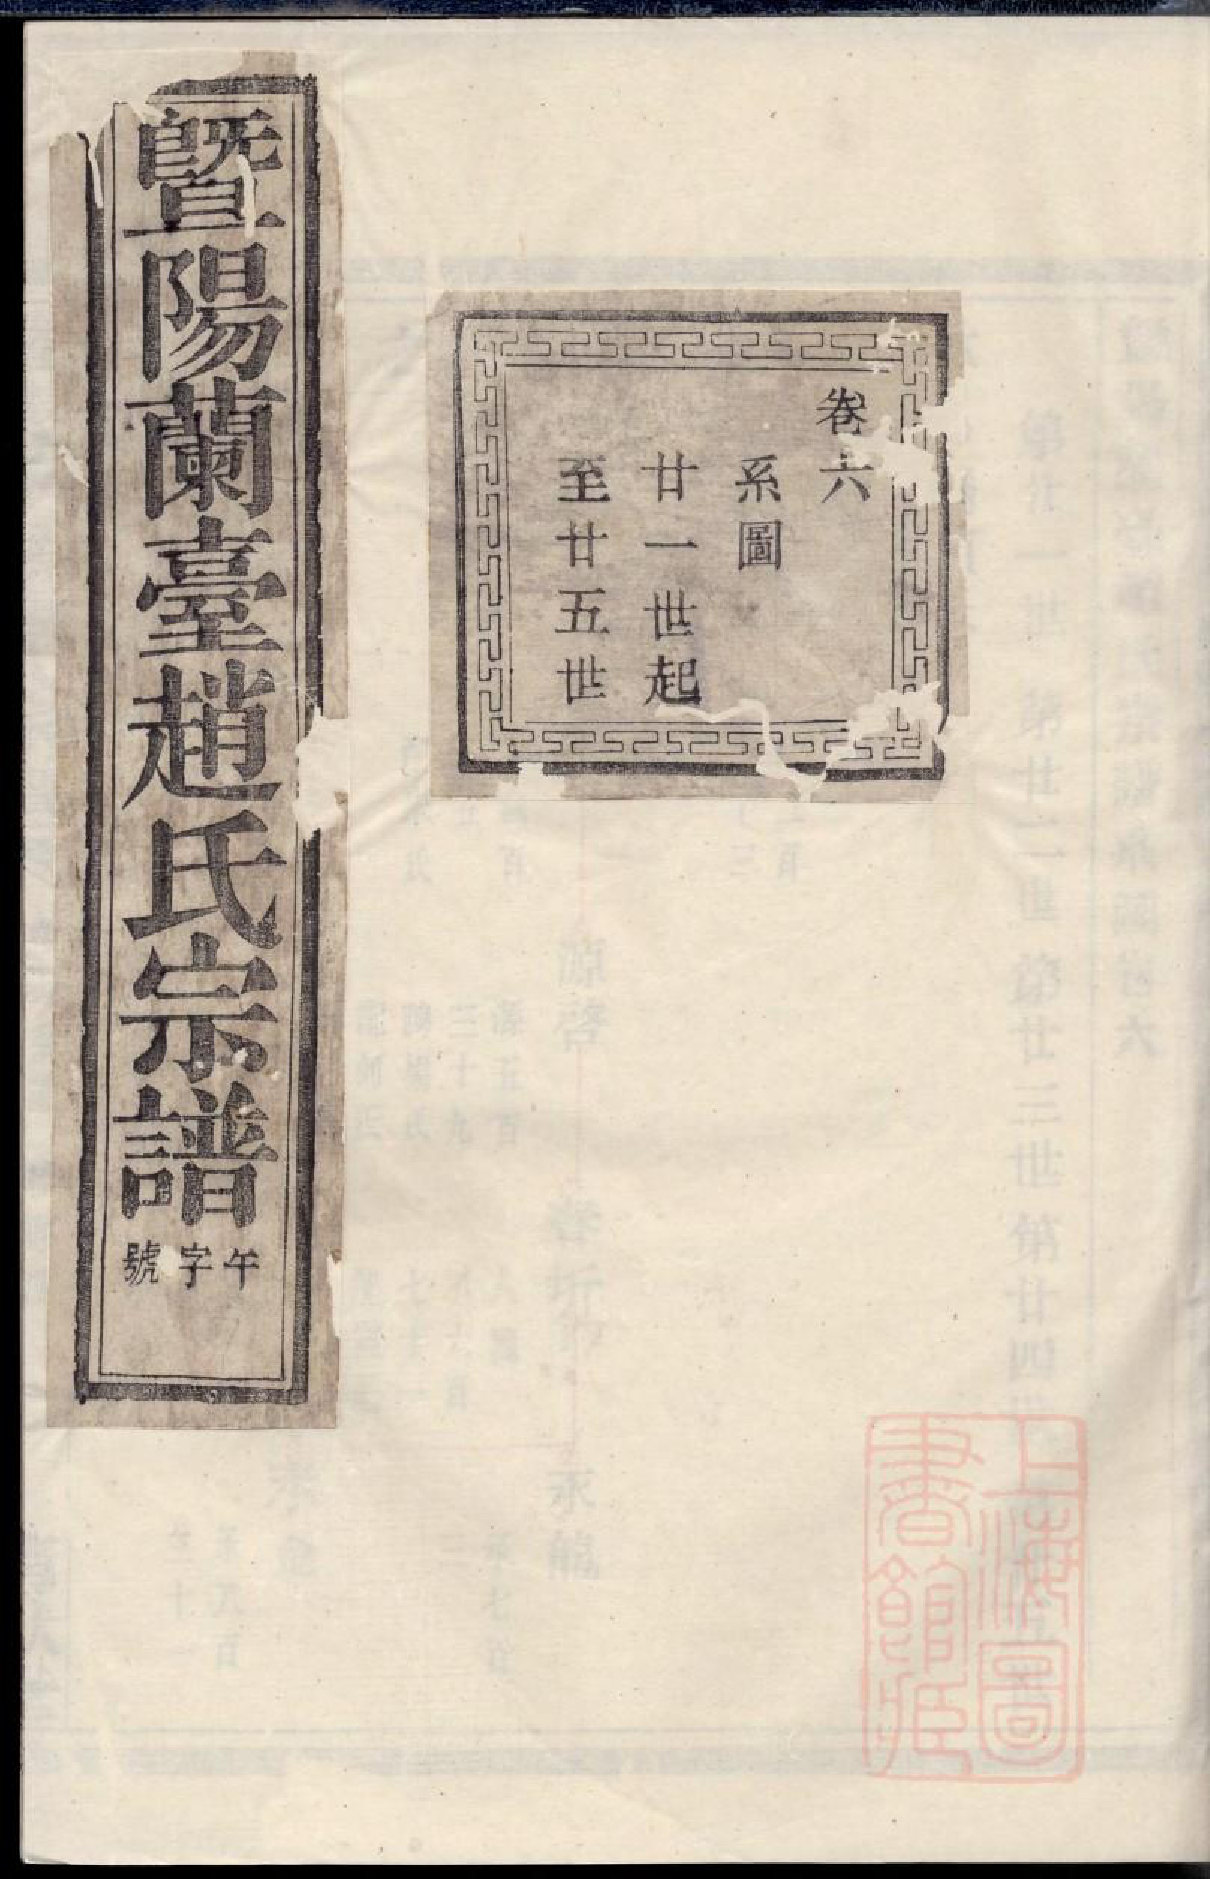 暨陽蘭臺趙氏宗譜
午字號
卷六
系圖
廿一世起
至廿五世
上海圖
書館藏